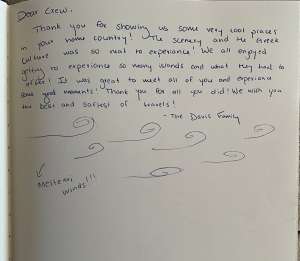 Dear Crew,
Thank you for showing us some very cool places
in your home country! The scenery and the Greek
culture was so neat to experience! We all enjoyed
getting to experience so many islands and what they had to
offer! It was great to meet all of you and experience
some good moments! Thank you for all you did! We wish you
the best and safest of travels!
- The Davis Family
Meltemi
winds!!!